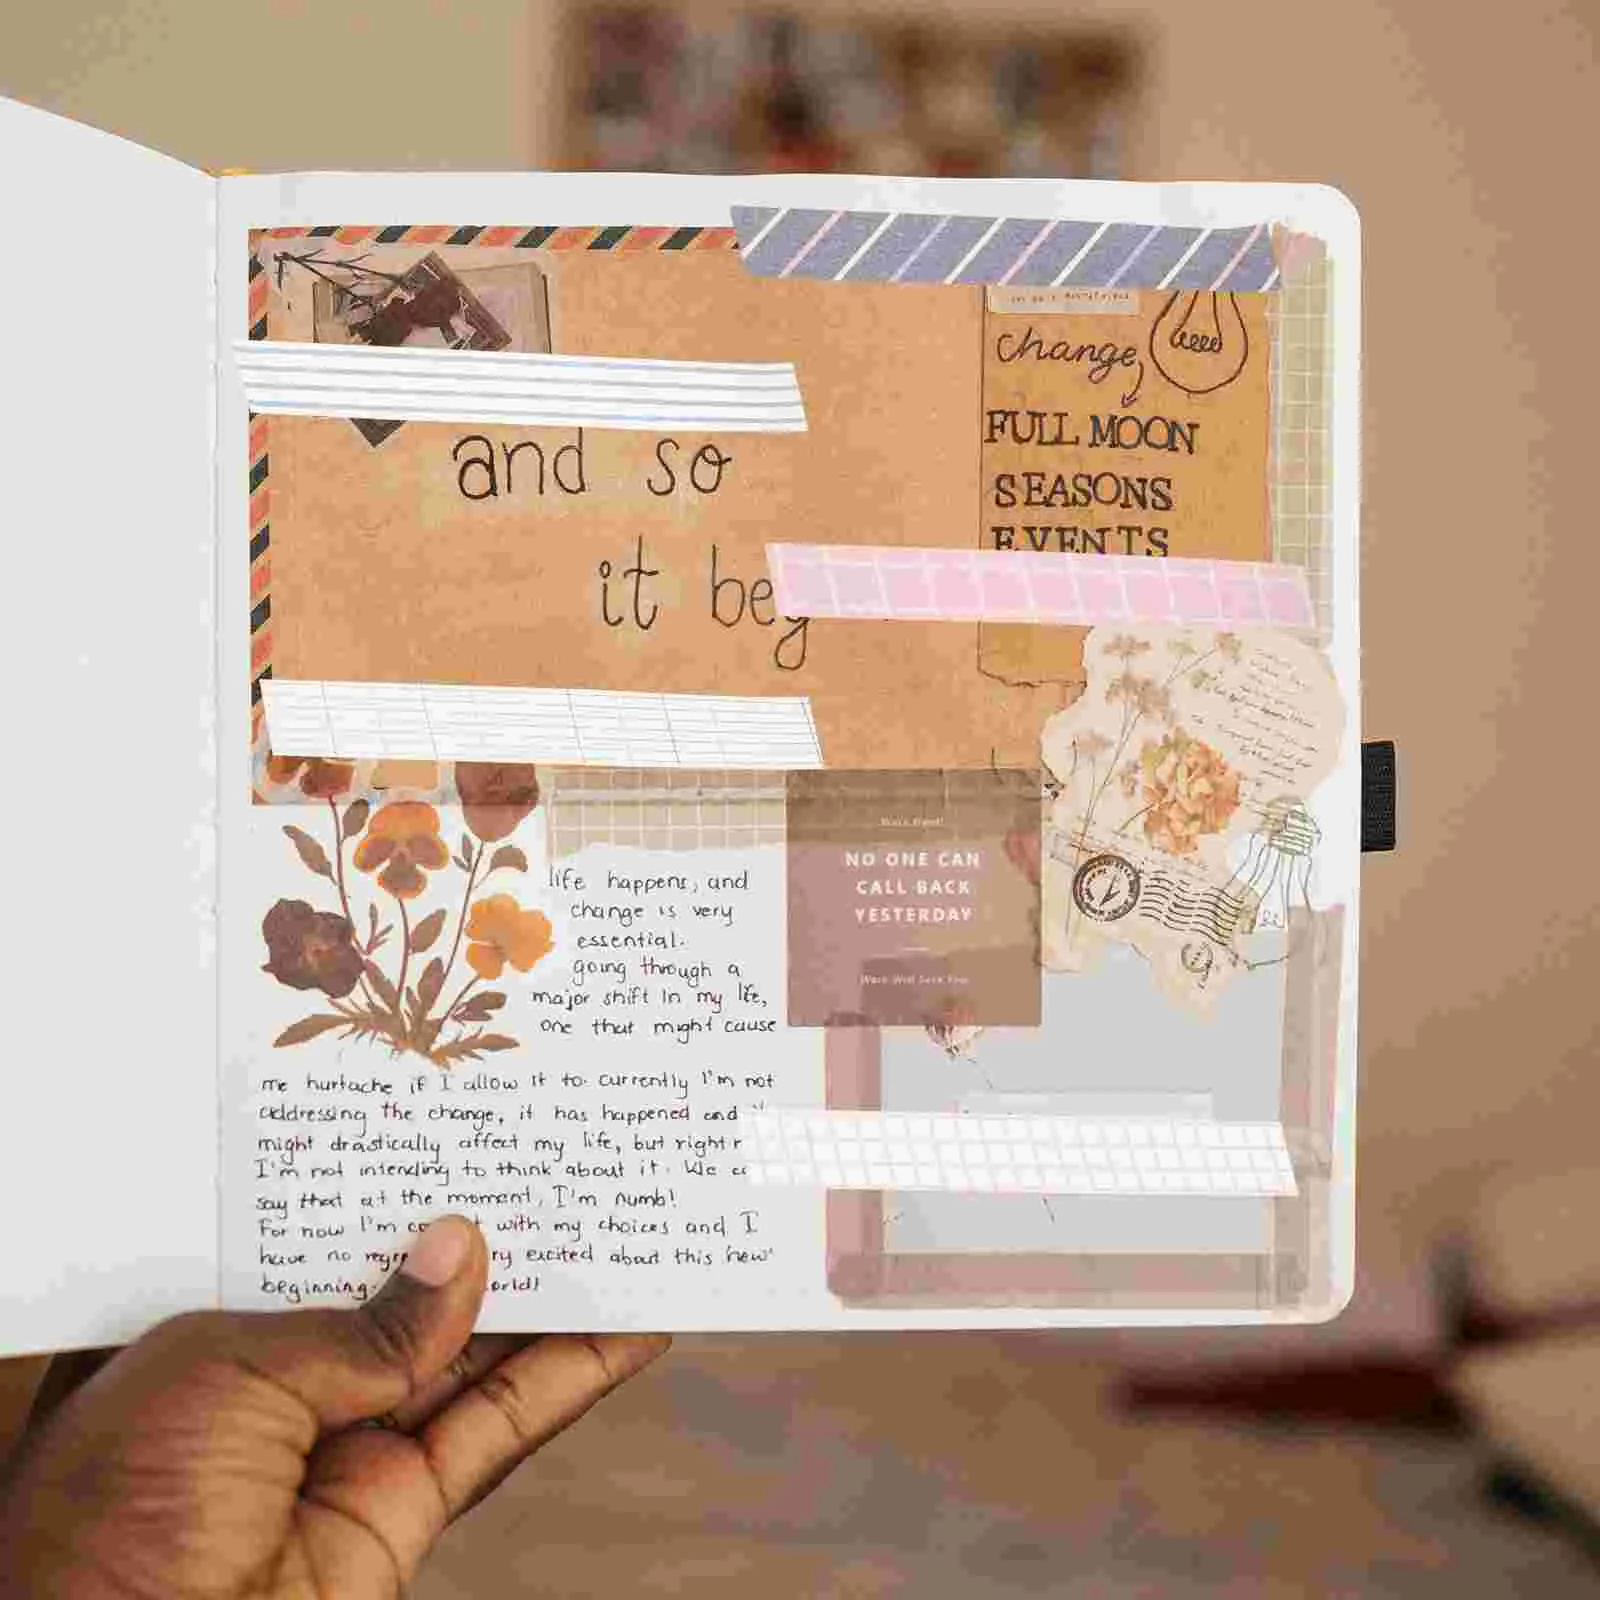 change
FULL MOON
SEASONS
EVENTS
and so
it beg
Work Hard!
NO ONE CAN
CALL BACK
YESTERDAY
life happens, and
change is very
essential.
going through a
major shift in my life,
one that might cause
me hurtache if I allow it to. currently I'm not
addressing the change, it has happened and
might drastically affect my life, but right
I'm not intending to think about it. We
say that at the moment, I'm numb!
For now I'm with my choices and I
have no excited about this new
beginning.